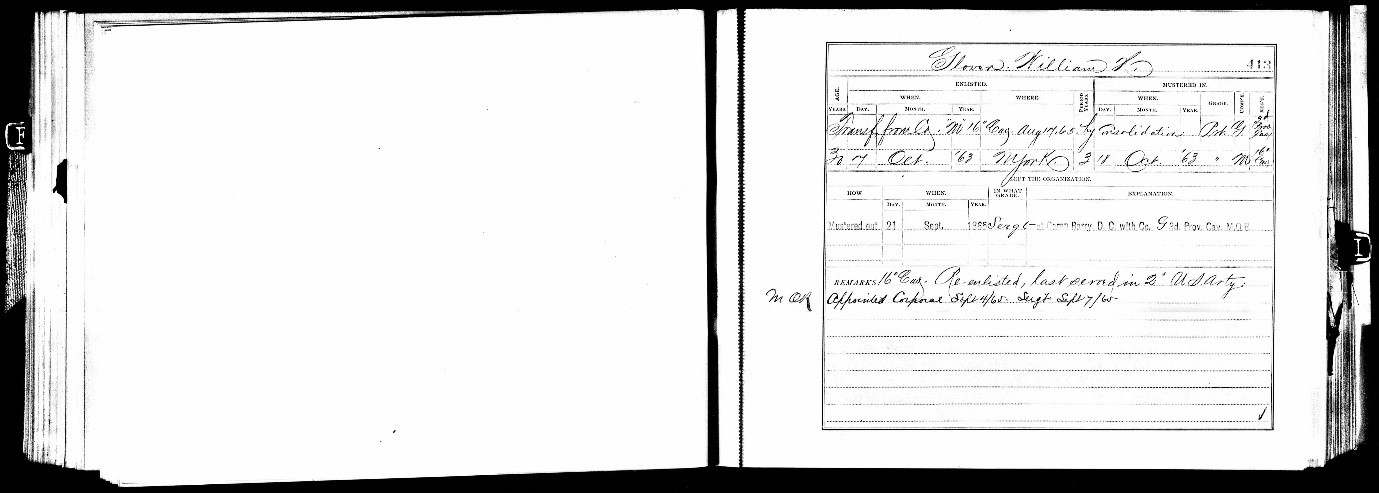 Glover. William H. 413
ENLISTED. MUSTERED IN.
AGE. WHEN. WHERE PERIOD YEARS. WHEN. GRADE. COMP'Y. REG'T.
YEARS DAY. MONTH. YEAR. DAY. MONTH. YEAR.
Transf from Co. "M" 16" Cav. Aug 17, 65. by Consolidation Prt. G. 3d Prov Cav
30 7 Oct. '63 N York 3 18 Oct. '63 " M 16" Cav
LEFT THE ORGANISATION.
HOW WHEN. IN WHAT GRADE. EXPLANATION.
DAY. MONTH. YEAR.
Mustered out 21 Sept. 1865 Sergt at Camp Barry, D. C. with Co. G 3d. Prov. Cav.
REMARKS 16" Cav. Re-enlisted, last served in 2" U S. Arty.
M OR Appointed Corporal Sept 4/65. Sergt Sept 7/65